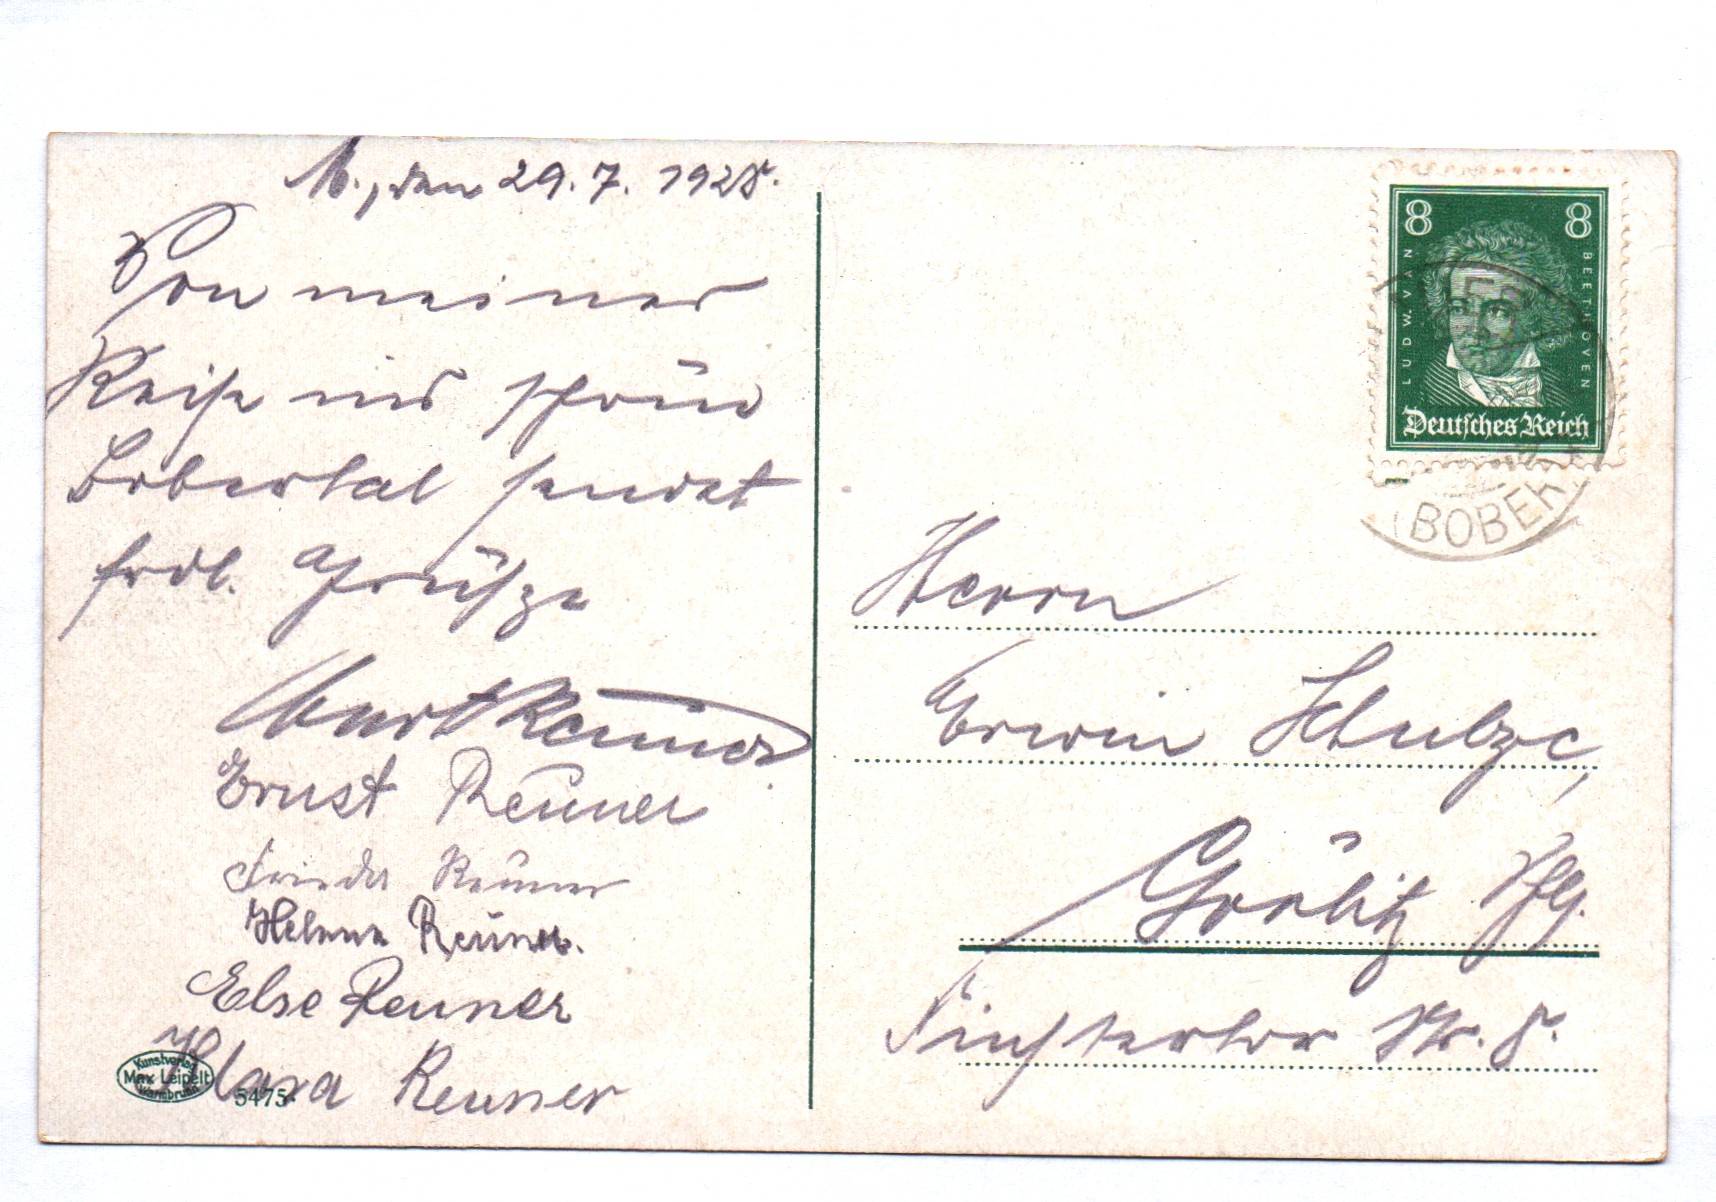 M., den 29.7.1928.
Von meiner
Reise ins schöne
Bobertal sendet
frdl. Grüße
Curt Reuner
Ernst Reuner
Frieda Reuner
Helene Reuner.
Else Reuner
Klara Reuner
Kunstverlag
Max Leipelt
Warmbrunn
5475
8 8
LUDW. VAN BEETHOVEN
Deutsches Reich
(BOBER
Herrn
Erwin Schulze,
Görlitz Schl.
Finstertor Str. 8.